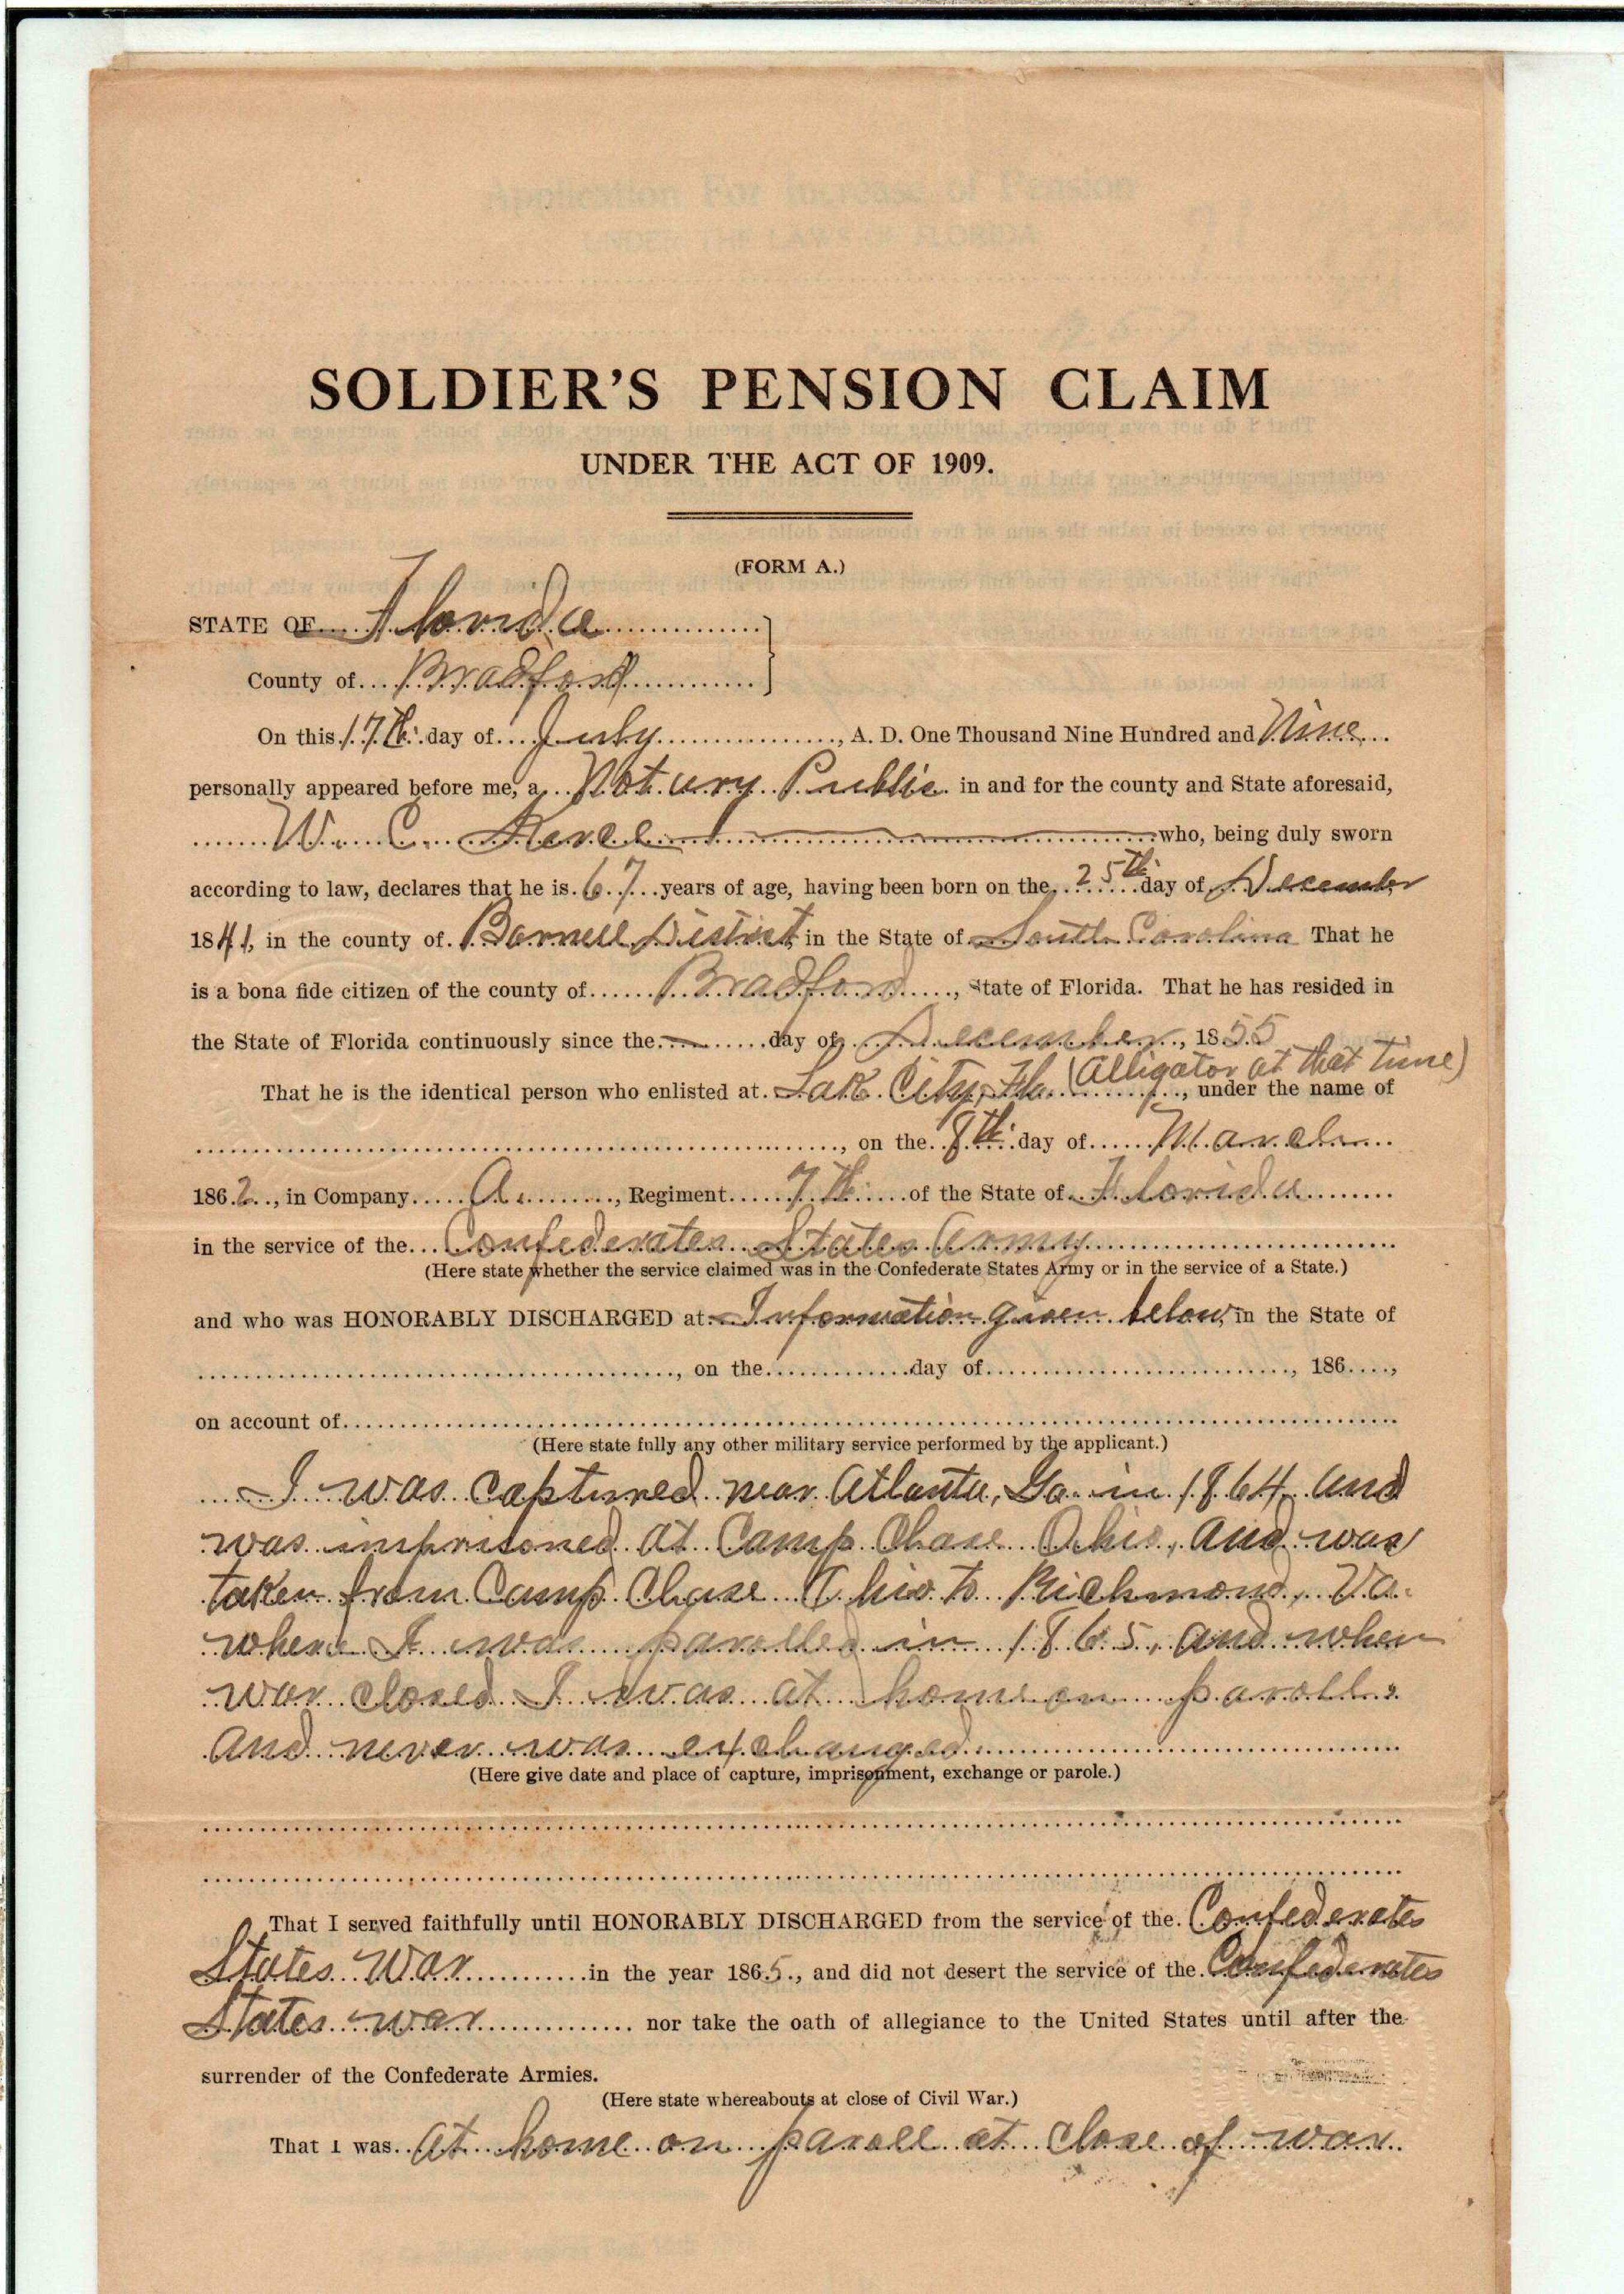 SOLDIER'S PENSION CLAIM
UNDER THE ACT OF 1909.
(FORM A.)
STATE OF Florida
County of Bradford
On this 17th day of July, A. D. One Thousand Nine Hundred and Nine
personally appeared before me, a Notary Public in and for the county and State aforesaid,
W. C. who, being duly sworn
according to law, declares that he is 67 years of age, having been born on the 25th day of December
1841, in the county of Barnell District, in the State of South Carolina That he
is a bona fide citizen of the county of Bradford, State of Florida. That he has resided in
the State of Florida continuously since the day of December, 1855
That he is the identical person who enlisted at Lake City, Fla. (Alligator at that time), under the name of
, on the 8th day of March
1862, in Company A, Regiment 7th of the State of Florida
in the service of the Confederates States Army
(Here state whether the service claimed was in the Confederate States Army or in the service of a State.)
and who was HONORABLY DISCHARGED at Information given below, in the State of
, on the day of , 186 ,
on account of
(Here state fully any other military service performed by the applicant.)
I was captured near Atlanta, Ga. in 1864, and
was imprisoned at Camp Chase Ohio, and was
taken from Camp Chase Ohio to Richmond, Va.
where I was parolled in 1865, and when
war closed I was at home on parolle
and never was exchanged.
(Here give date and place of capture, imprisonment, exchange or parole.)
That I served faithfully until HONORABLY DISCHARGED from the service of the Confederates
States War in the year 1865, and did not desert the service of the Confederates
States war nor take the oath of allegiance to the United States until after the
surrender of the Confederate Armies.
(Here state whereabouts at close of Civil War.)
That I was at home on paroll at close of war.